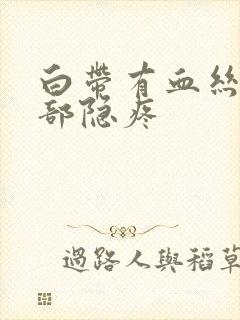 白帶有血絲
部隐疼
過路人與稻草